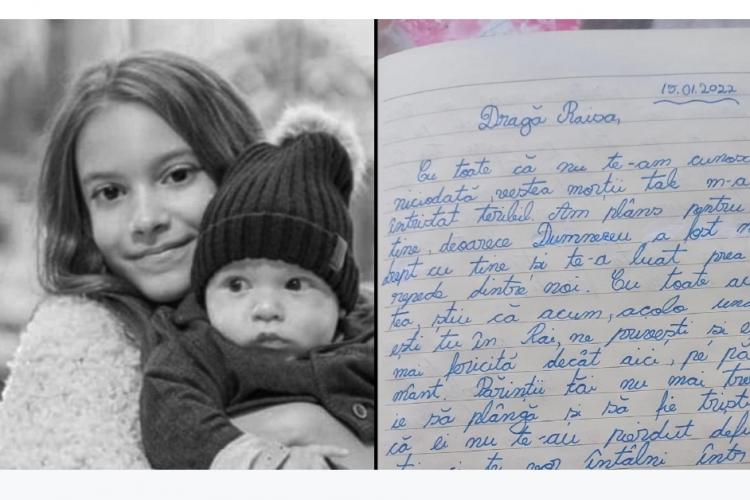 15.01.2022
Dragă Raisa,
Cu toate că nu te-am cunos
niciodată, vestea morții tale m-a
întristat teribil. Am plâns pentru
tine, deoarece Dumnezeu a fost n
drept cu tine și te-a luat prea
repede dintre noi. Cu toate ac
tea, știu că acum, acolo und
ești tu în Rai, ne privești și e
mai fericită decât aici, pe pă
mânt. Părinții tăi nu mai tre
ie să plângă și să fie triști
că ei nu te-au pierdut defi
te vor întâlni într